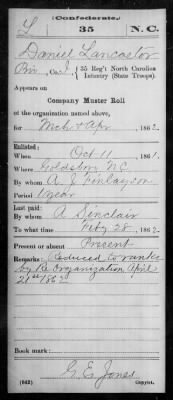 (Confederate.)
L 35 N.C.
Daniel Lancaster
Pri, Co. I, 35 Reg't North Carolina
Infantry (State Troops).
Appears on
Company Muster Roll
of the organization named above,
for Mch & Apr, 1862.
Enlisted:
When Oct 11, 1861.
Where Goldsboro NC
By whom A. J. Finlayson
Period 1 year
Last paid:
By whom A Sinclair
To what time Feby 28, 1862.
Present or absent Present
Remarks: Reduced to ranks
by Re Organization April
21st 1862
Book mark:
G. E. Jones
(642) Copyist.